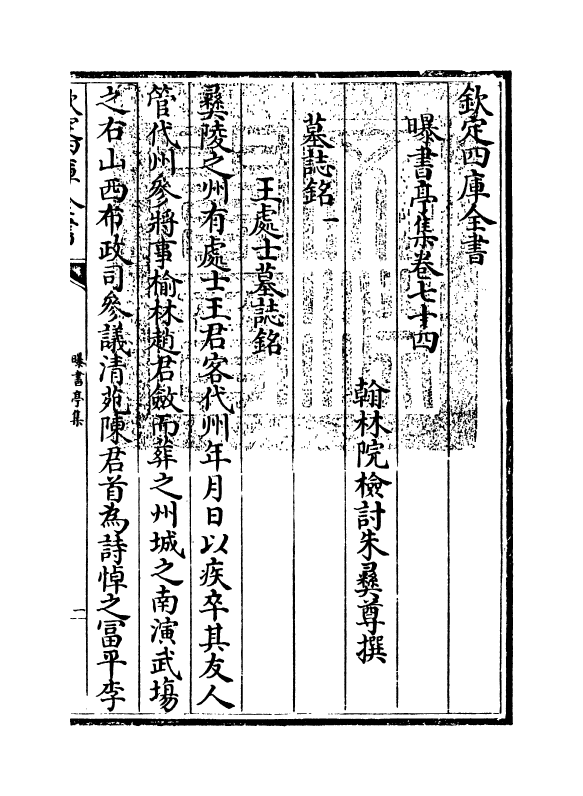 欽定四庫全書
曝書亭集卷七十四
翰林院檢討朱彞尊撰
墓誌銘一
王處士墓誌銘
彞陵之州有處士王君客代州年月日以疾卒其友人
管代州參將事榆林趙君斂而葬之州城之南演武場
之右山西布政司參議清苑陳君首為詩悼之冨平李
曝書亭集